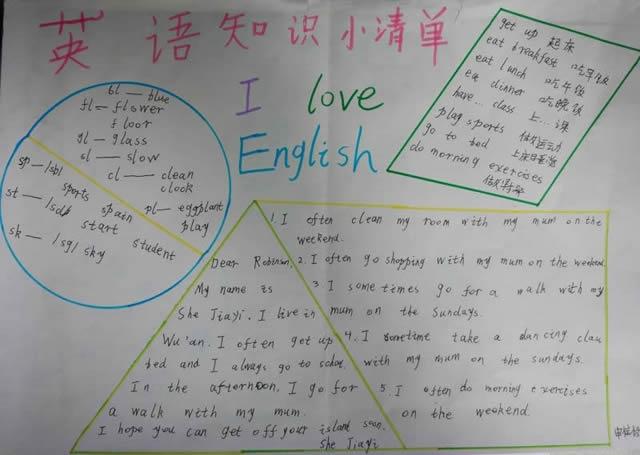 英语知识小清单
I love
English
get up 起床
eat breakfast 吃早饭
eat lunch 吃午饭
eat dinner 吃晚饭
have... class 上...课
play sports 做运动
go to bed 上床睡觉
do morning exercises
做早操
bl — blue
fl — flower
floor
gl — glass
sl — slow
cl — clean
clock
pl — eggplant
play
sp — /sb/
sports
spain
st — /sd/
start
student
sk — /sg/ sky
Dear Robinson,
My name is
She Jiayi. I live in
Wu'an. I often get up
bed and I always go to
In the afternoon, I go for
a walk with my mum.
I hope you can get off your island soon.
She Jiayi
1. I often clean my room with my mum on the
weekend.
2. I often go shopping with my mum on the weekend.
3 I some times go for a walk with my
mum on the sundays.
4. I sometime take a dancing clau
with my mum on the sundays.
5. I often do morning exercises
on the weekend.